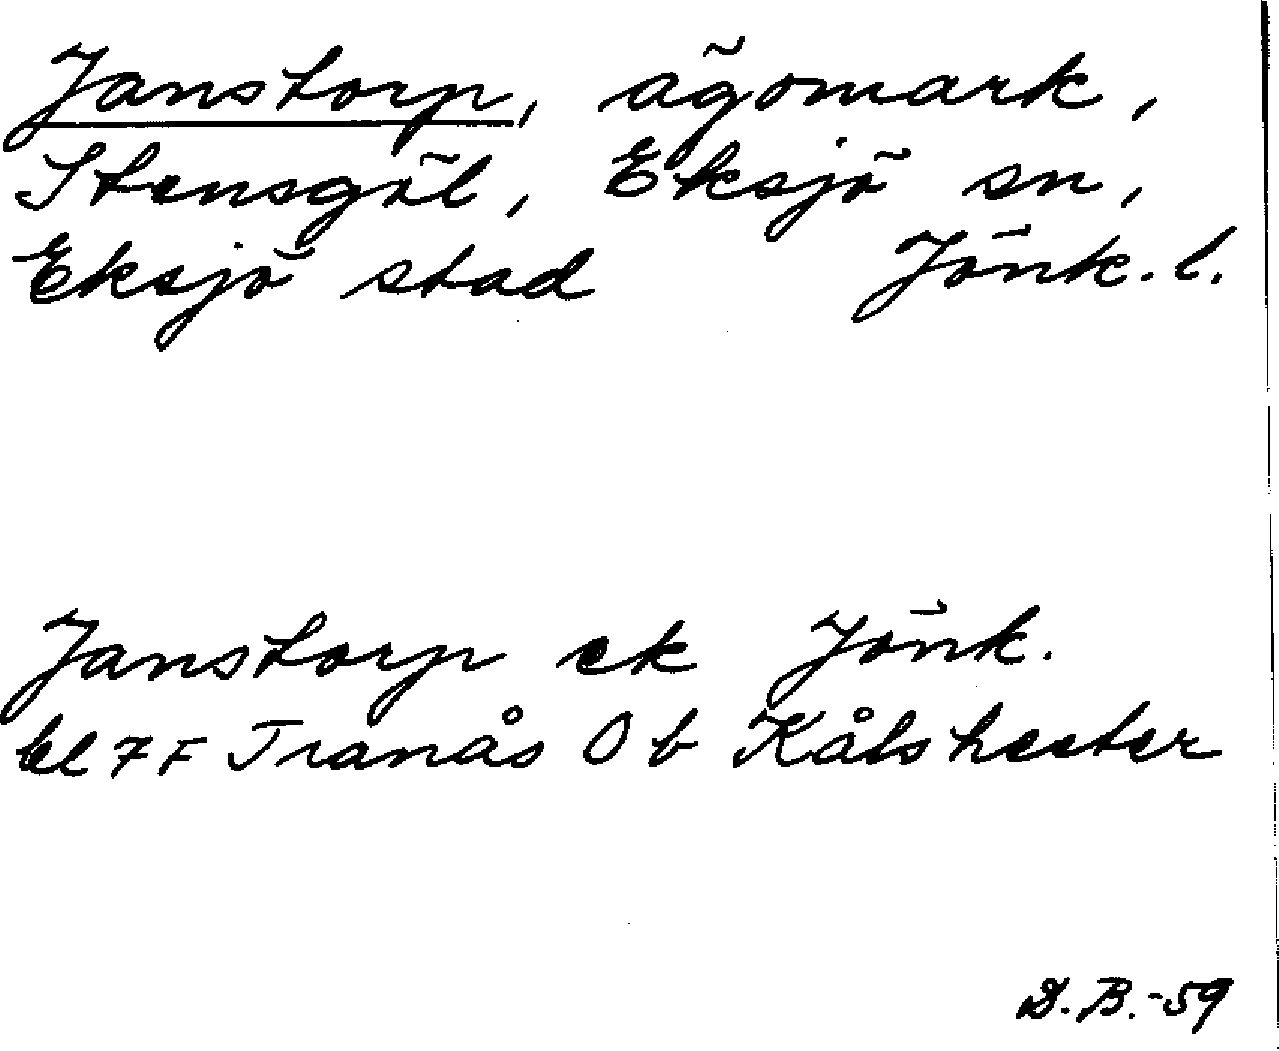 Janstorp, ägomark,
Stensgöl, Eksjö sn,
Eksjö stad Jönk. l.
Janstorp ek Jönk.
bl 7 F Tranås O b Kålshester
D.B.-59